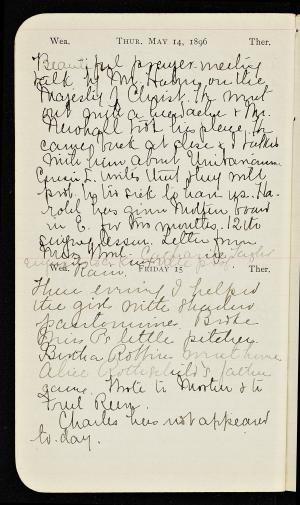 Wea. THUR. MAY 14, 1896 Ther.
Beautiful prayer meeting
talk by Mr. on the
Majesty of Christ. He went
out with a headache & Mr.
Newhall took his place. He
came back at close & I talked
with him about Unitarianism
Cousin L. writes that they will
prob. be too sick to have us. Ha-
rold has given Mother board
in E. for two months. 12th
singing lesson. Letter from
Miss
Wea. Rain. FRIDAY 15 Ther.
This evening I helped
the girls with shadow
pantomimes. Broke
Miss P's little pitcher.
Bertha Robbins went home
Alice Rothschild's father
came. Wrote to Mother & to
Fred
Charles has not appeared
to-day.